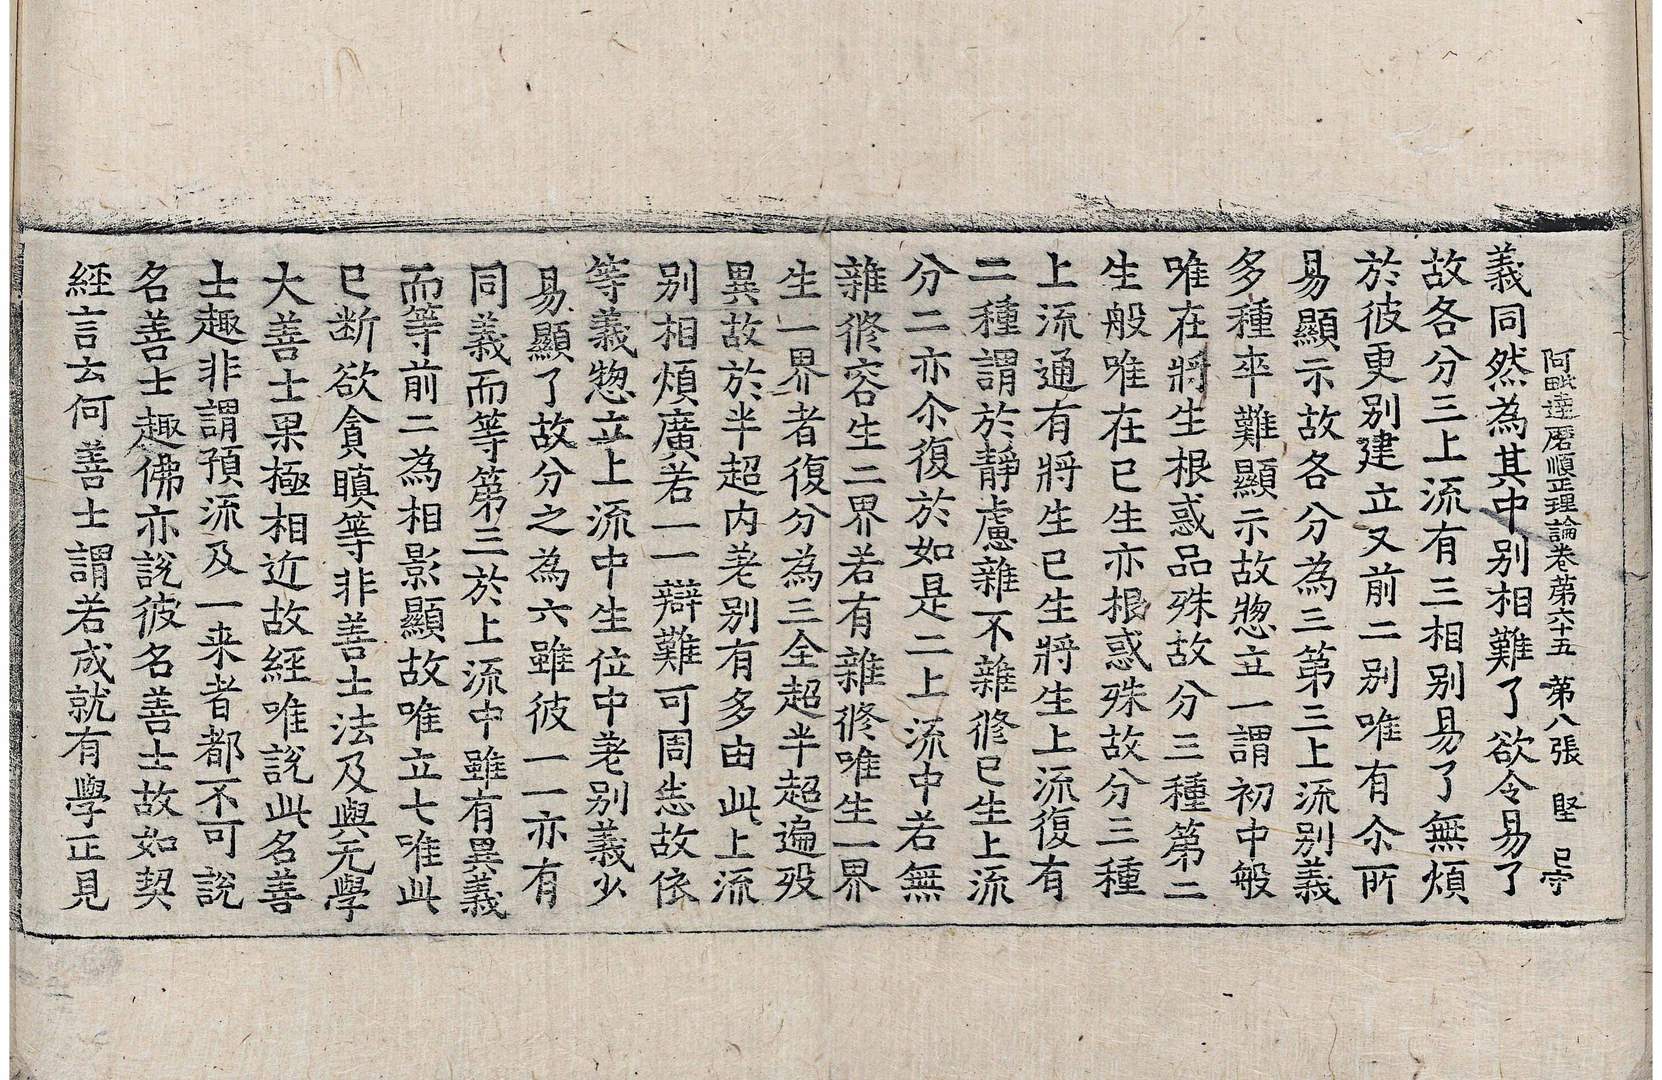 阿毗達磨順正理論卷第六十五 第八張 堅 已守
義同然為其中別相難了欲令易了
故各分三上流有三相別易了無煩
於彼更別建立又前二別唯有尒所
易顯示故各分為三第三上流別義
多種卒難顯示故惣立一謂初中般
唯在將生根惑品殊故分三種第二
生般唯在已生亦根惑殊故分三種
上流通有將生已生將生上流復有
二種謂於靜慮雜不雜修已生上流
分二亦尒復於如是二上流中若無
雜修容生二界若有雜修唯生一界
生一界者復分為三全超半超遍歿
異故於半超内差別有多由此上流
別相煩廣若一一辯難可周悉故依
等義惣立上流中生位中差別義少
易顯了故分之為六雖彼一一亦有
同義而等第三於上流中雖有異義
而等前二為相影顯故唯立七唯此
已斷欲貪瞋等非善士法及與无學
大善士果極相近故經唯說此名善
士趣非謂預流及一来者都不可說
名善士趣佛亦說彼名善士故如契
經言云何善士謂若成就有學正見